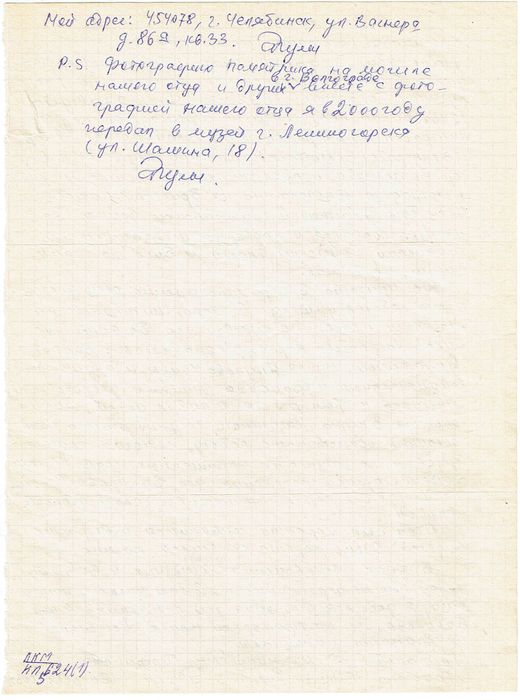 Мой адрес: 454078, г. Челябинск, ул. Вагнера
д. 86а, кв. 33.
P.S. Фотографию памятника на могиле
в г. Волгограде
нашего отца и других вместе с фото-
графией нашего отца я в 2000 году
передал в музей г. Лениногорска
(ул. Шашина, 18).
ЛКМ
КП 624(1).
5